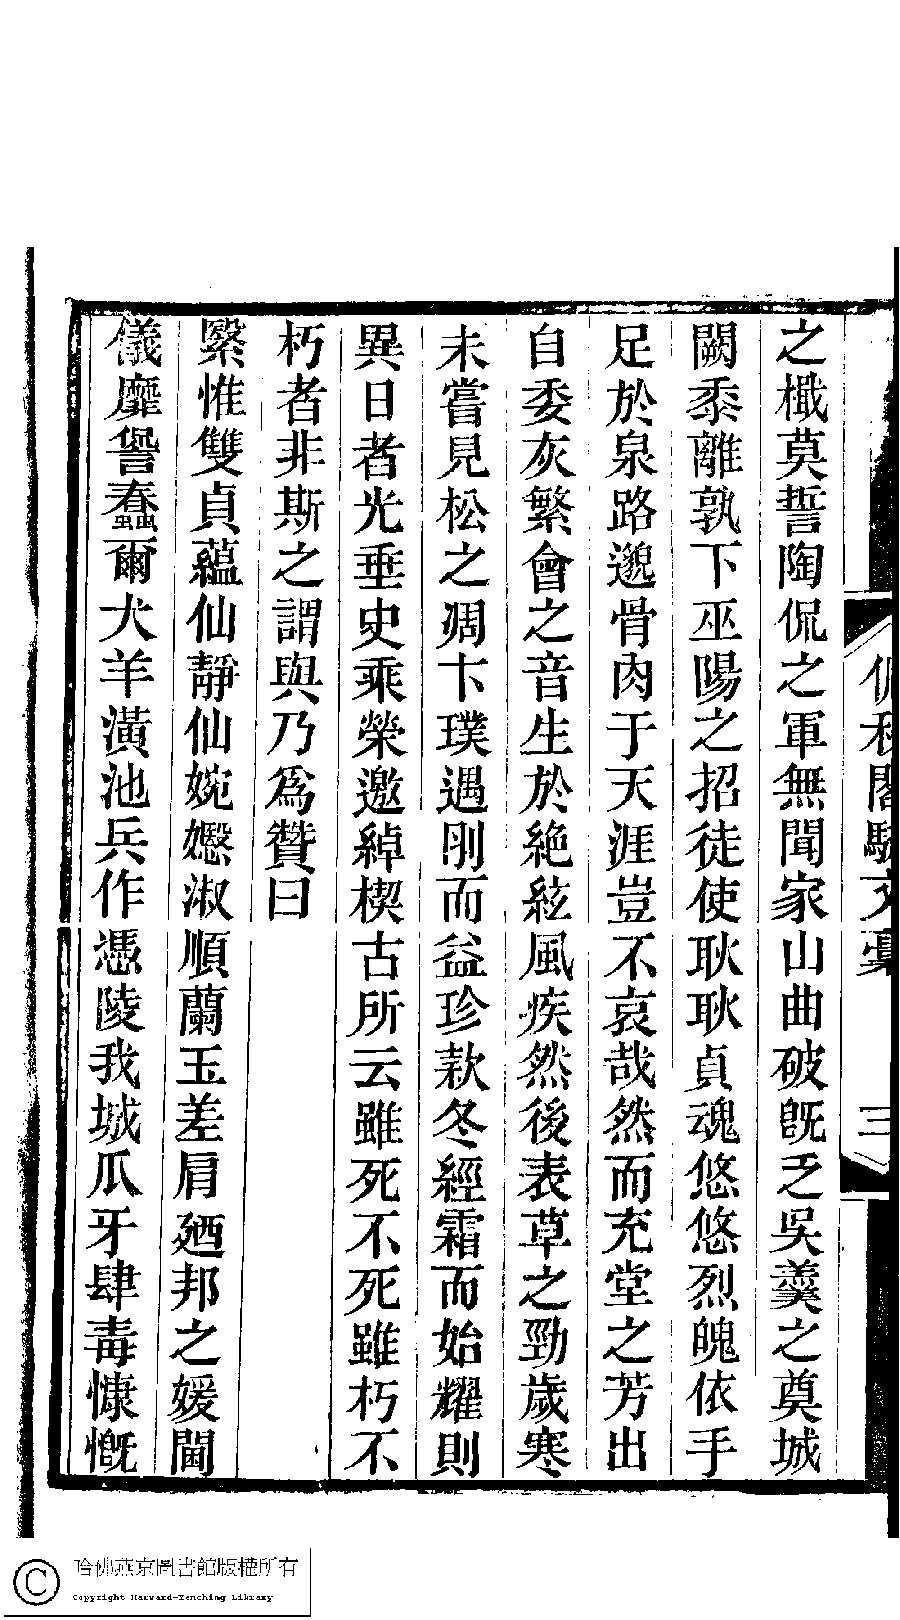 之檝莫誓陶侃之軍無聞家山曲破旣乏吳羹之奠城
闕黍離孰下巫陽之招徒使耿耿貞魂悠悠烈魄依手
足於泉路邈骨肉于天涯豈不哀哉然而充堂之芳出
自委灰繁會之音生於絶絃風疾然後表草之勁歲寒
未嘗見松之凋卞璞遇刖而益珍款冬經霜而始耀則
異日者光垂史乘榮邀綽楔古所云雖死不死雖朽不
朽者非斯之謂與乃爲贊曰
繄惟雙貞蘊仙靜仙婉嫕淑順蘭玉差肩廼邦之媛閫
儀靡諐蠢爾犬羊潢池兵作憑陵我城爪牙肆毒慷慨
秋閣駢文稾
三
哈佛燕京圖書館版權所有
Copyright Harvard-Yenching Library